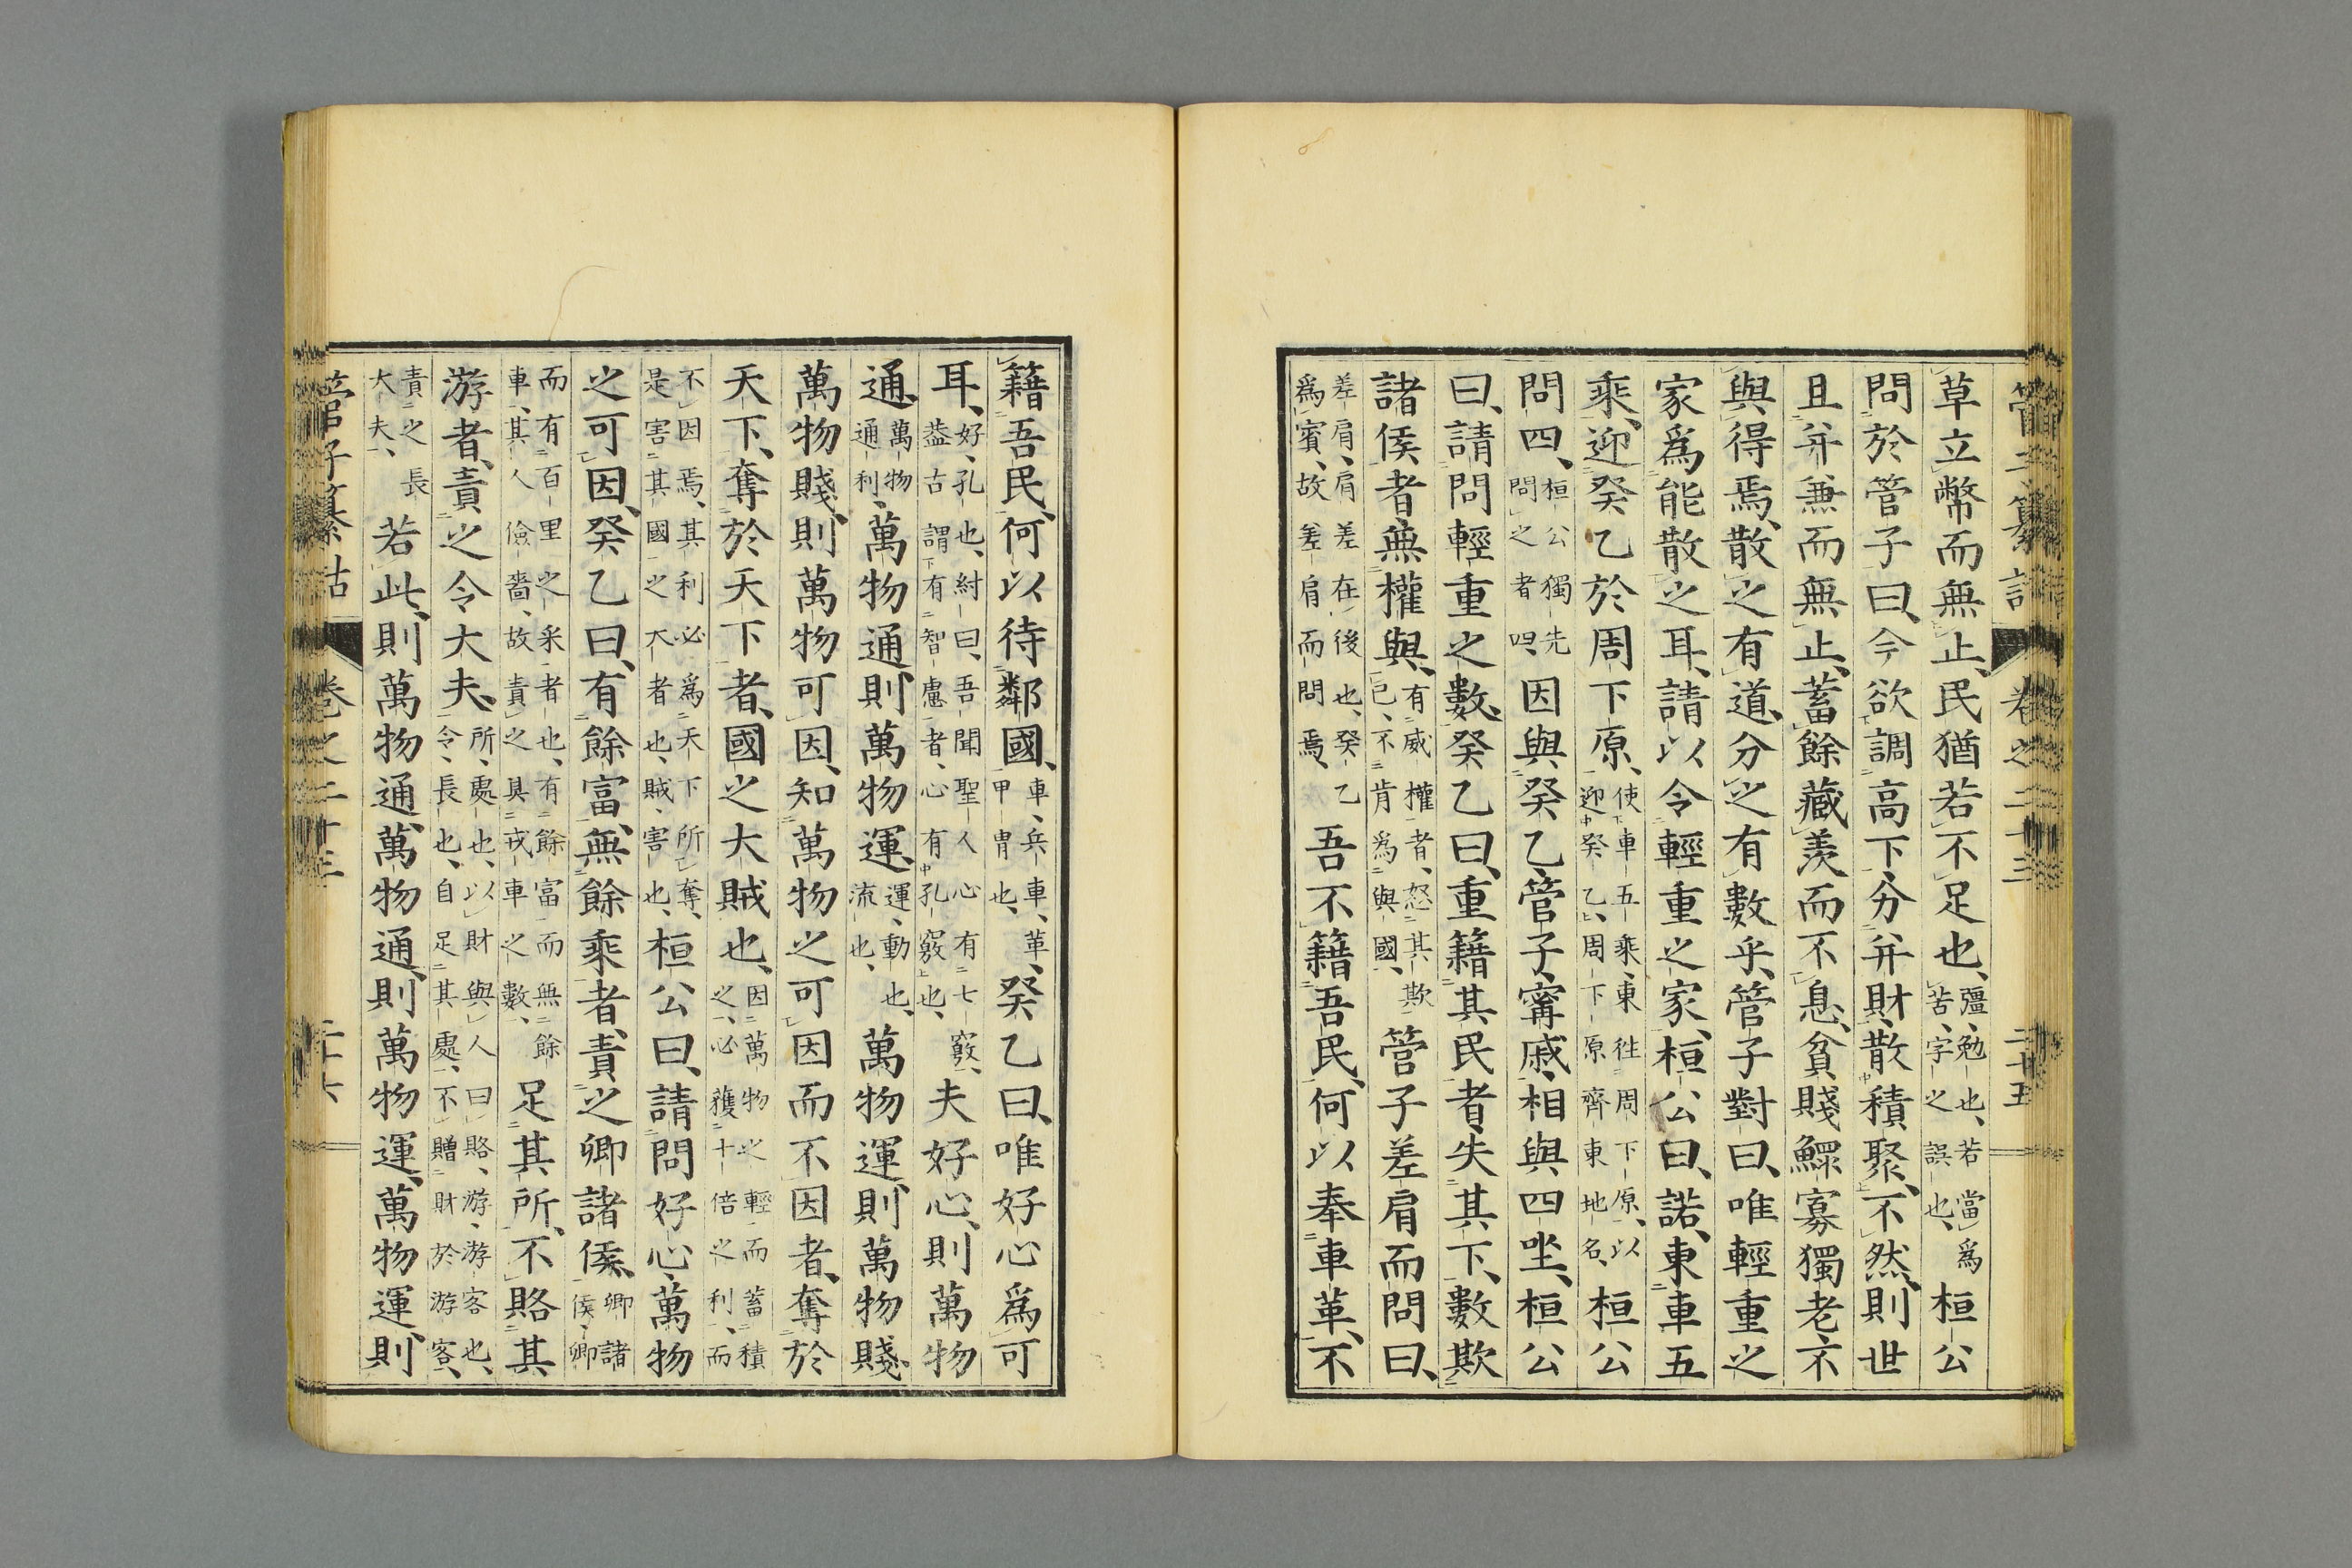 管子纂詁 卷之二十三 二十五
草立幣而無止、民猶若不足也、彊、勉也、若當爲苦、字之誤也、桓公
問於管子曰、今欲調高下、分幷財、散積聚、不然、則世
且幷兼而無止、蓄餘藏羨而不息、貧賤鰥寡獨老不
與得焉、散之有道、分之有數乎、管子對曰、唯輕重之
家爲能散之耳、請以令輕重之家、桓公曰、諾、東車五
乘、迎癸乙於周下原、使車五乘、東往周下原、以迎癸乙、周下原齊東地名、桓公
問四、桓公獨先問之者呬、因與癸乙、管子、甯戚、相與四坐、桓公
曰、請問輕重之數、癸乙曰、重籍其民者、失其下、數欺
諸侯者、無權與、有威權者、怒其欺已、不肯爲與國、管子差肩而問曰、
差肩、肩差在後也、癸乙爲賓、故差肩而問焉、吾不籍吾民、何以奉車革、不
籍吾民、何以待鄰國、車、兵車、革、甲冑也、癸乙曰、唯好心爲可
耳、好、孔也、紂曰、吾聞聖人心有七竅、蓋古謂有智慮者、心有孔竅也、夫好心、則萬物
通、萬物通利、萬物通、則萬物運、運、動也、流也、萬物運、則萬物賤、
萬物賤、則萬物可因、知萬物之可因而不因者、奪於
天下、奪於天下者、國之大賊也、因萬物之輕而蓄積之、必獲十倍之利、而
不因焉、其利必爲天下所奪、是害其國之大者也、賊、害也、桓公曰、請問好心、萬物
之可因、癸乙曰、有餘富、無餘乘者、責之卿諸侯、卿諸侯、卿
而有百里之采者也、有餘富而無餘車、其人儉嗇、故責之具戎車之數、足其所、不賂其
游者、責之令大夫、所、處也、以財與人曰賂、游、游客也、令、長也、自足其處、不贈財於游客、
責之長大夫、若此、則萬物通、萬物通、則萬物運、萬物運、則
管子纂詁 卷之二十三 二十六